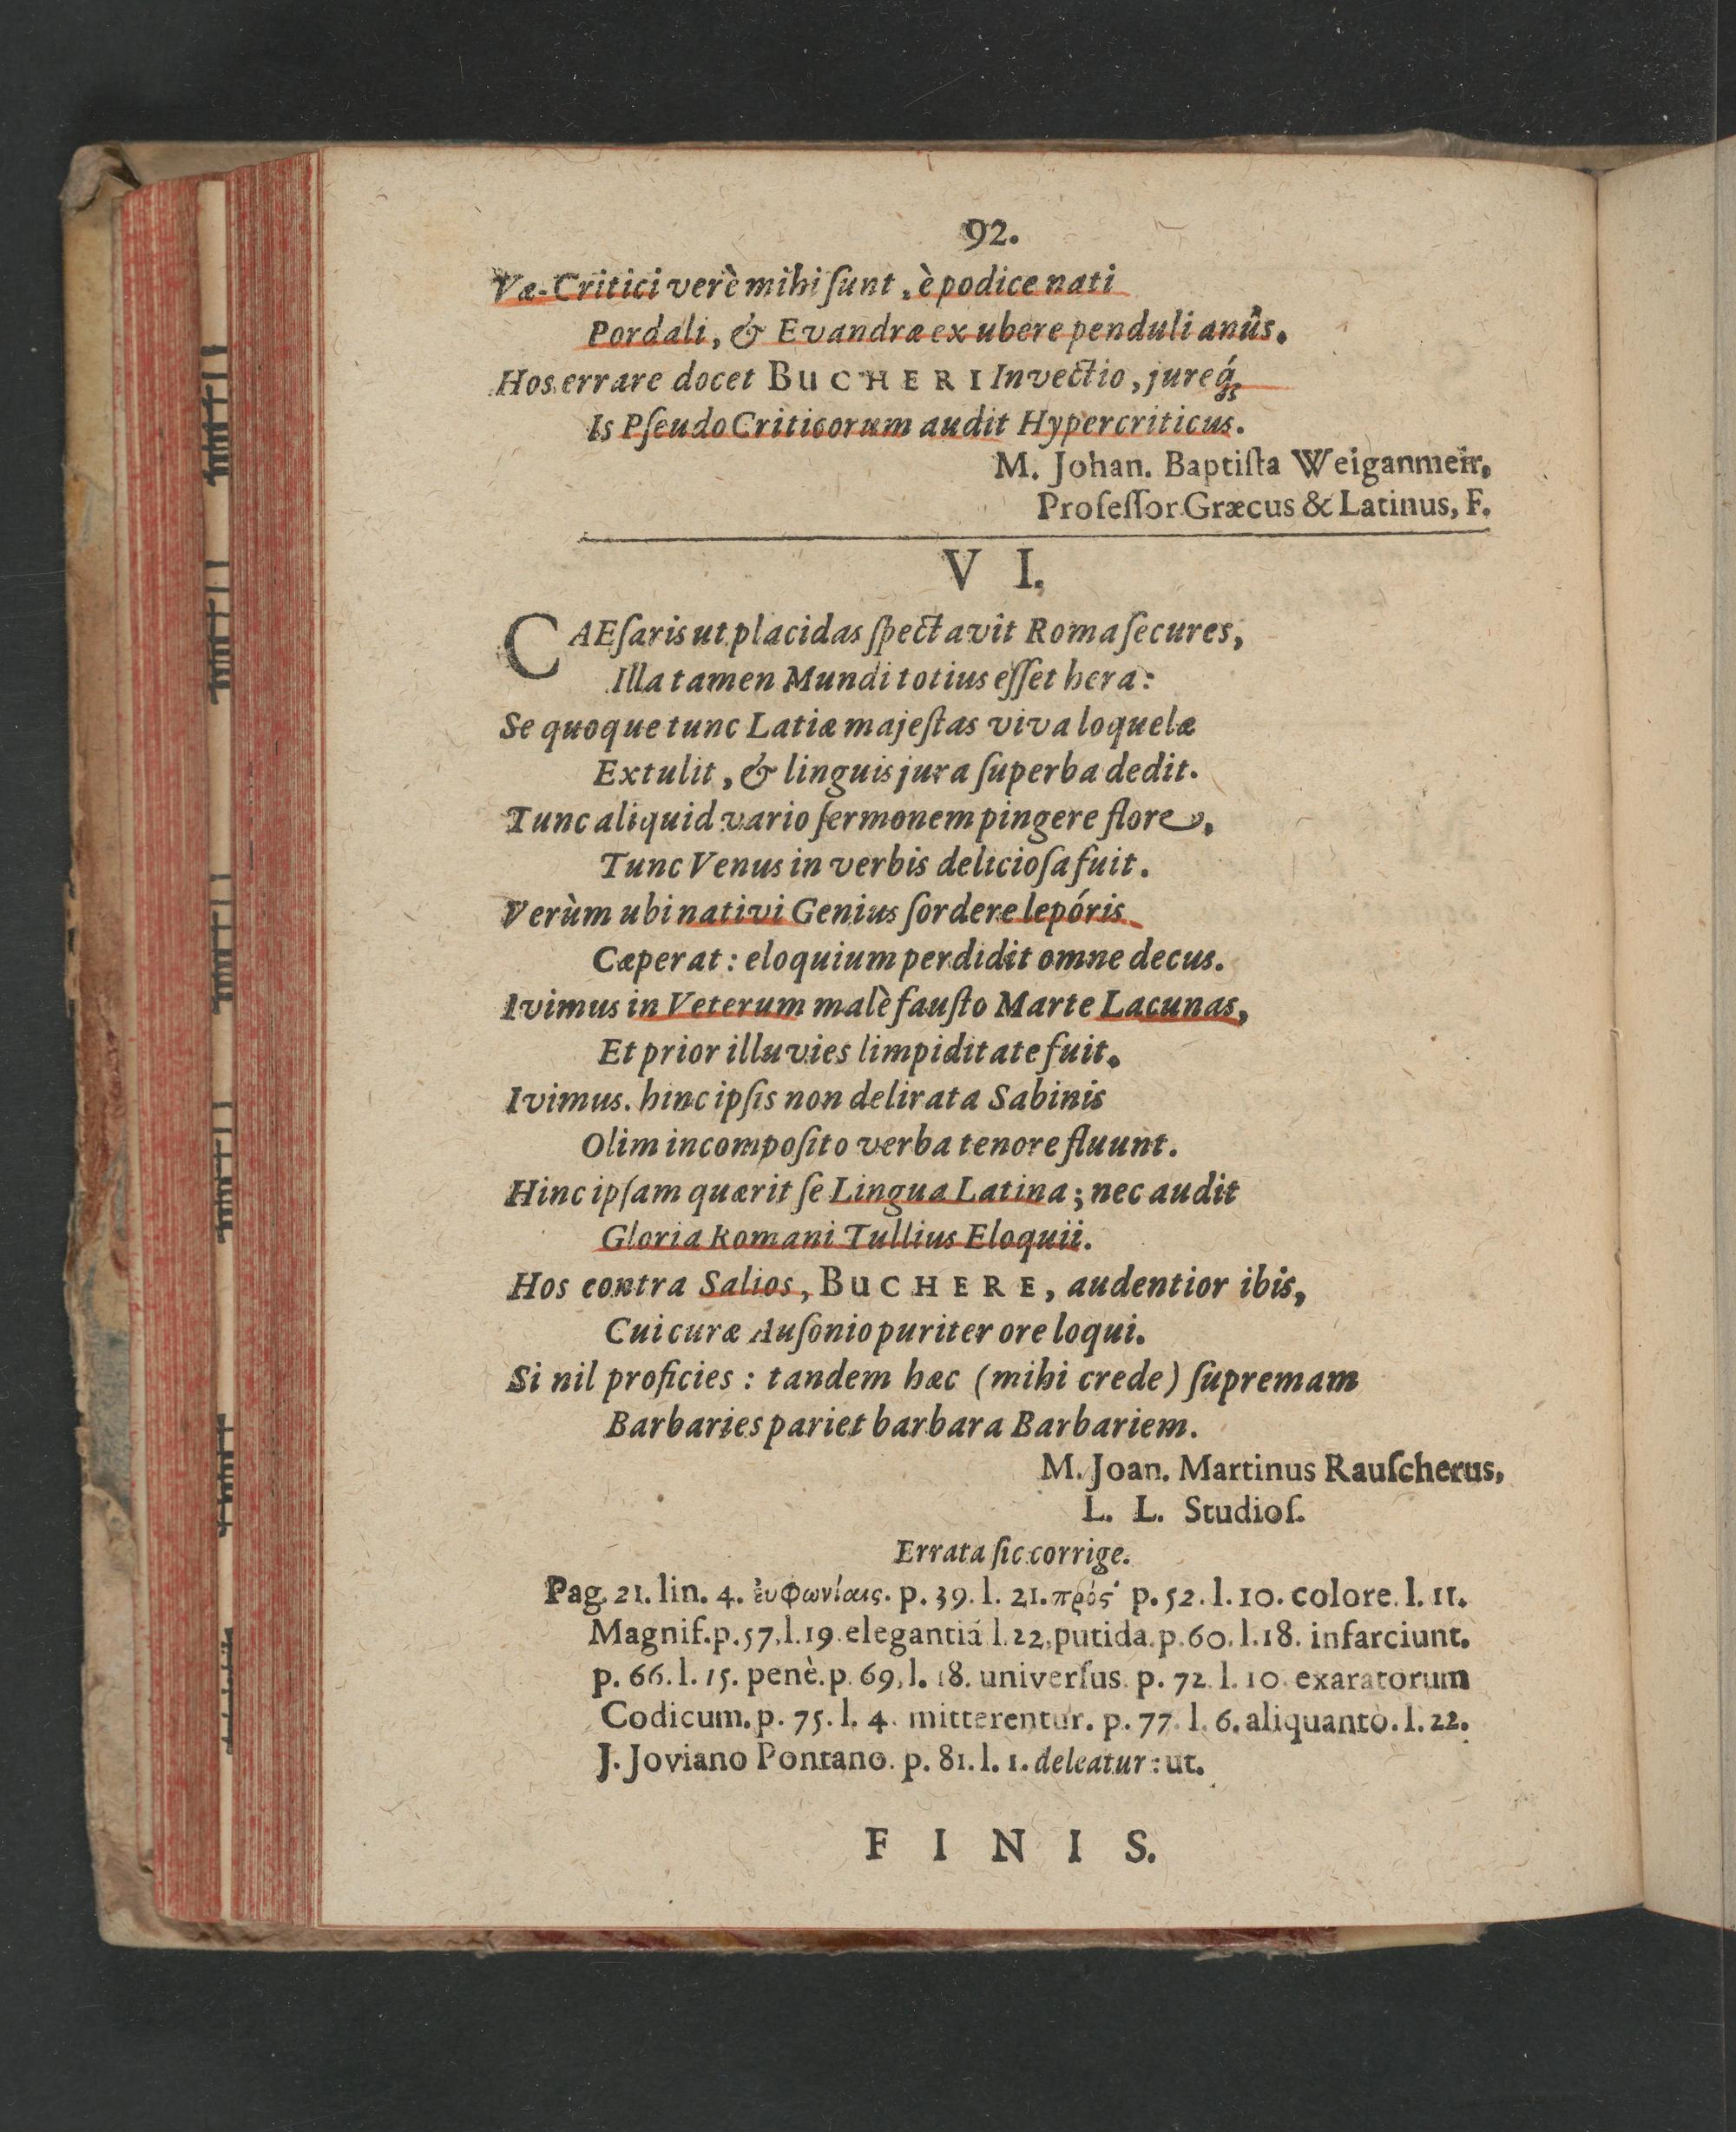 92.
Væ-Critici verè mihi ſunt, è podice nati
Pordali, & Evandræ ex ubere penduli anûs.
Hos errare docet BUCHERI Invectio, jureq́;
Is Pſeudo Criticorum audit Hypercriticus.
M. Johan. Baptiſta Weiganmeir,
Profeſſor Græcus & Latinus, F.
V I.
CAEſaris ut placidas ſpectavit Roma ſecures,
Illa tamen Mundi totius eſſet hera:
Se quoque tunc Latiæ majeſtas viva loquelæ
Extulit, & linguis jura ſuperba dedit.
Tunc aliquid vario ſermonem pingere flore,
Tunc Venus in verbis delicioſa fuit.
Verùm ubi nativi Genius ſordere lepóris
Cæperat: eloquium perdidit omne decus.
Ivimus in Veterum malè fauſto Marte Lacunas,
Et prior illuvies limpiditate fuit.
Ivimus. hinc ipſis non delirata Sabinis
Olim incompoſito verba tenore fluunt.
Hinc ipſam quærit ſe Lingua Latina; nec audit
Gloria Romani Tullius Eloquii.
Hos contra Salios, BUCHERE, audentior ibis,
Cui curæ Auſonio puriter ore loqui.
Si nil proficies: tandem hæc (mihi crede) ſupremam
Barbaries pariet barbara Barbariem.
M. Joan. Martinus Rauſcherus,
L. L. Studioſ.
Errata ſic corrige.
Pag. 21. lin. 4. ἐυφωνίαις. p. 39. l. 21. πρός p. 52. l. 10. colore. l. 11.
Magnif. p. 57. l. 19. elegantiá l. 22. putida. p. 60. l. 18. infarciunt.
p. 66. l. 15. penè. p. 69. l. 18. univerſus. p. 72. l. 10. exaratorum
Codicum. p. 75. l. 4. mitterentur. p. 77. l. 6. aliquantò. l. 22.
J. Joviano Pontano. p. 81. l. 1. deleatur: ut.
F I N I S.